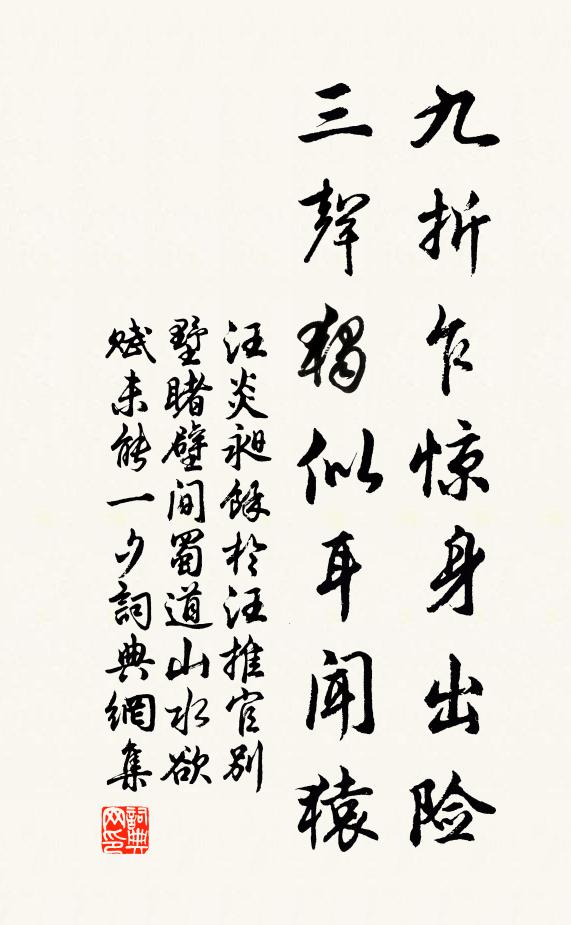 九折乍惊身出险
三聲獨似耳聞猿
汪炎昶餘於汪推官别
墅睹壁间蜀道山水欲
赋未能一夕詞典網集
詞典网印